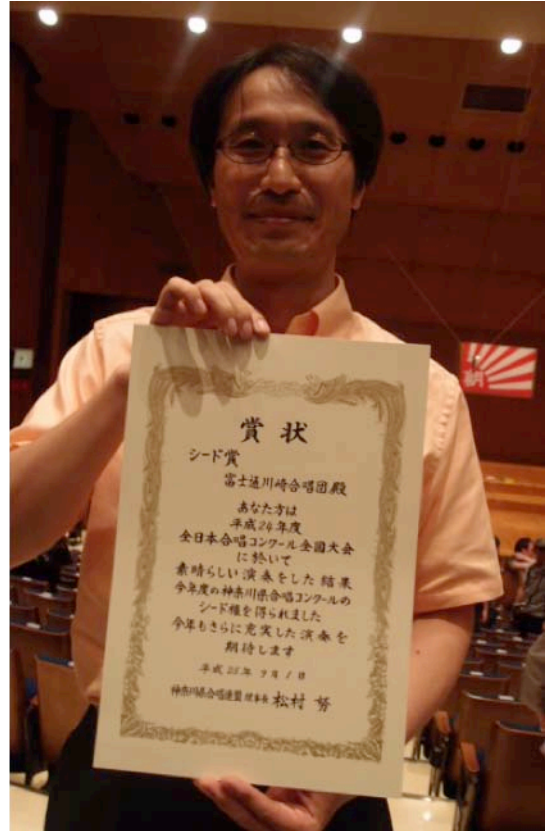 賞状
シード賞
富士通川崎合唱団殿
あなた方は
平成24年度
全日本合唱コンクール全国大会
に於いて
素晴らしい演奏をした結果
今年度の神奈川県合唱コンクールの
シード権を得られました
今年もさらに充実した演奏を
期待します
平成25年9月1日
神奈川県合唱連盟理事長 松村 努